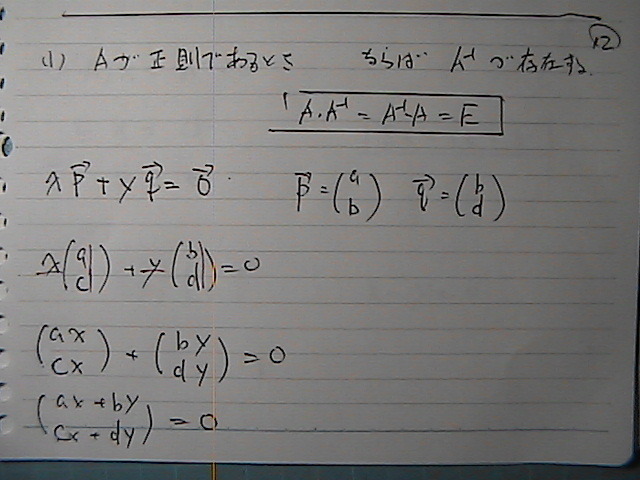 12
(1) Aが正則であるとき ならば A⁻¹が存在する.
A・A⁻¹ = A⁻¹A = E
x p⃗ + y q⃗ = 0⃗ . p⃗ = (a b) q⃗ = (b d)
x(a c) + y(b d) = 0
(ax cx) + (by dy) = 0
(ax + by cx + dy) = 0